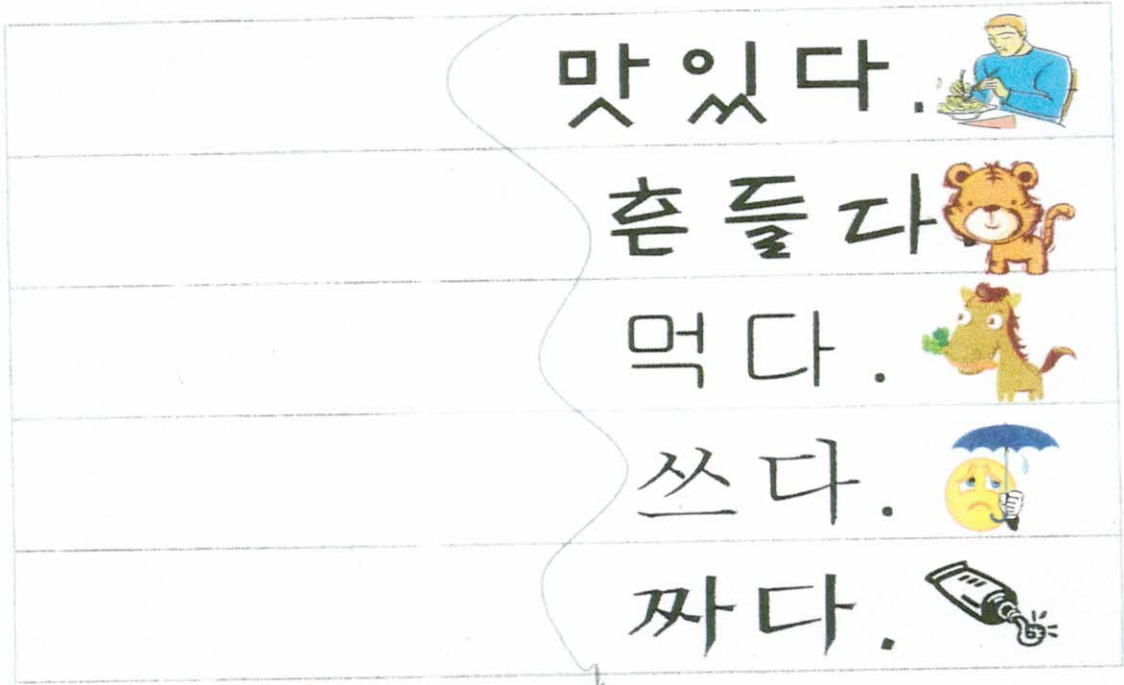 맛있다.
흔들다.
먹다.
쓰다.
짜다.